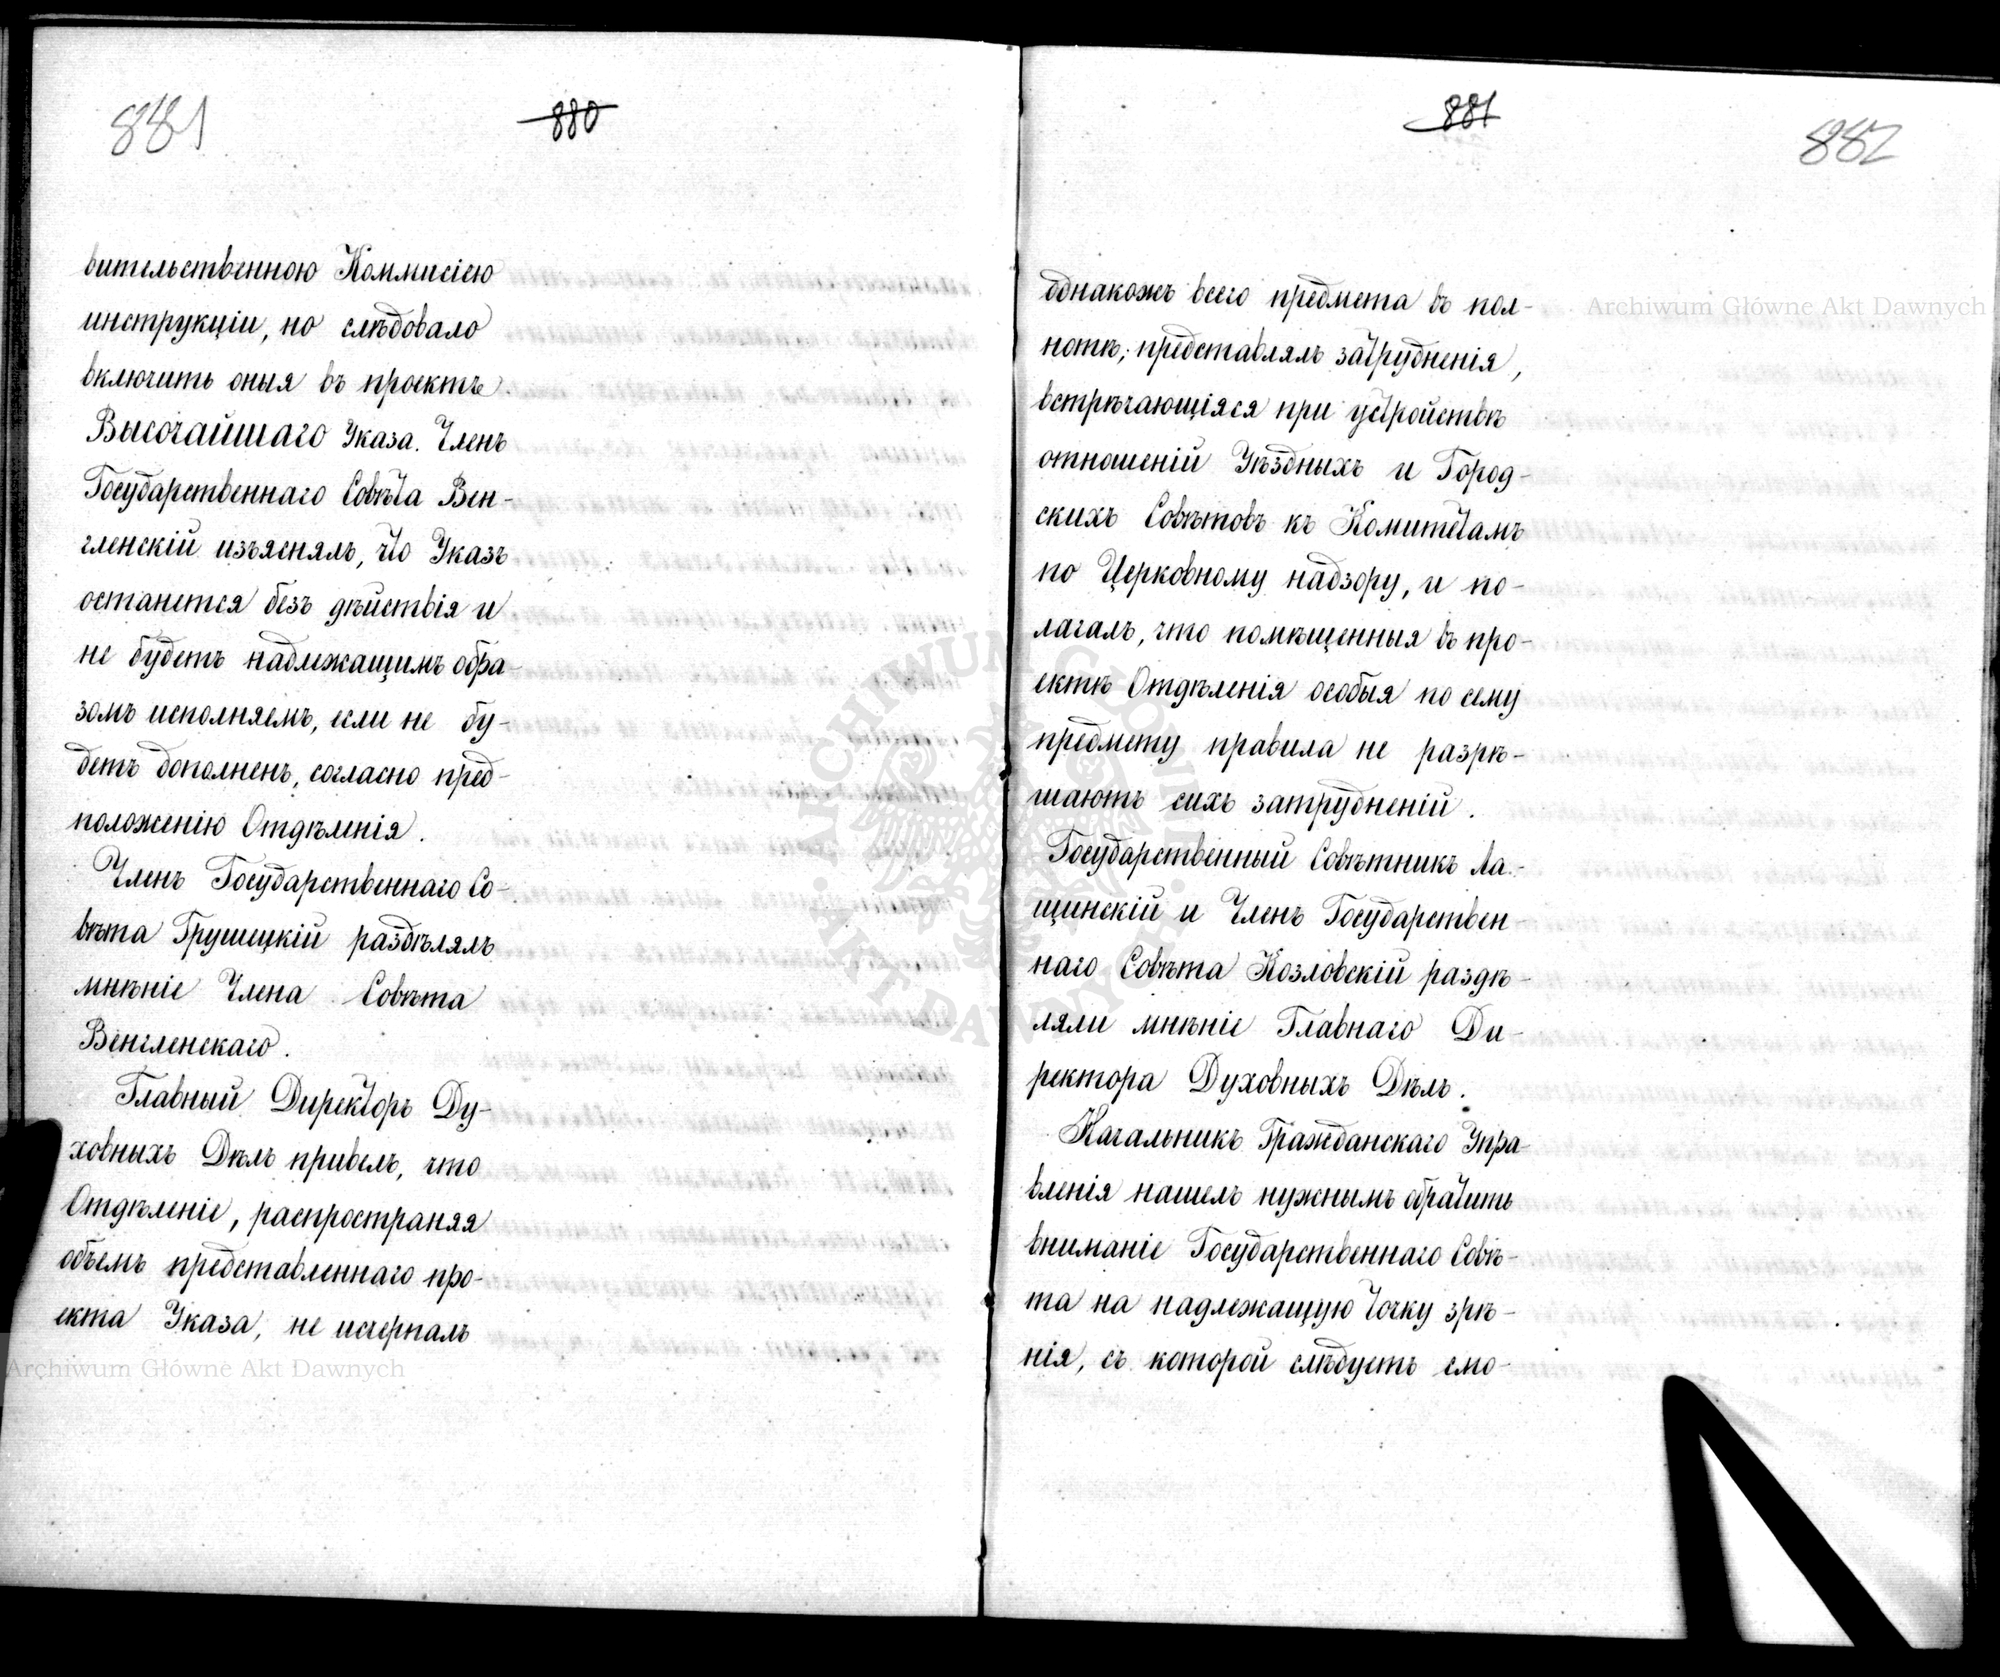 881
880
вительственною Коммисіею
инструкціи, но слѣдовало
включить оныя въ проектъ
Высочайшаго Указа. Членъ
Государственнаго Совѣта Вен-
гленскій изъяснялъ, что Указъ
останется безъ дѣйствія и
не будетъ надлежащимъ обра-
зомъ исполняемъ, если не бу-
детъ дополненъ, согласно пред-
положенію Отдѣленія.
Членъ Государственнаго Со-
вѣта Грушецкій раздѣлялъ
мнѣніе Члена Совѣта
Венгленскаго.
Главный Директоръ Ду-
ховныхъ Дѣлъ привелъ, что
Отдѣленіе, распространяя
объемъ представленнаго про-
екта Указа, не исчерпалъ
881
882
однакожъ всего предмета въ пол-
нотѣ; представлялъ затрудненія,
встрѣчающіяся при устройствѣ
отношеній Уѣздныхъ и Город-
скихъ Совѣтовъ къ Комитетамъ
по Церковному надзору, и по-
лагалъ, что помѣщенныя въ про-
ектѣ Отдѣленія особыя по сему
предмету правила не разрѣ-
шаютъ сихъ затрудненій.
Государственный Совѣтникъ Ла-
щинскій и Членъ Государствен
наго Совѣта Козловскій раздѣ-
ляли мнѣніе Главнаго Ди-
ректора Духовныхъ Дѣлъ.
Начальникъ Гражданскаго Упра-
вленія нашелъ нужнымъ обратить
вниманіе Государственнаго Совѣ-
та на надлежащую точку зрѣ-
нія, съ которой слѣдуетъ смо-
Archiwum Główne Akt Dawnych
Archiwum Główne Akt Dawnych
ARCHIWUM GŁÓWNE AKT DAWNYCH